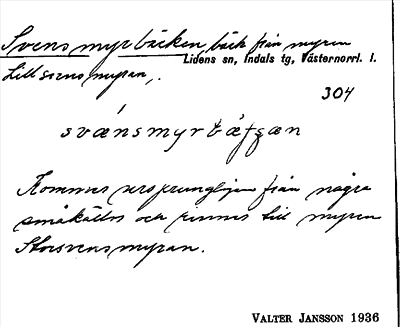 Svensmyrbäcken, bäck från myren
Lidens sn, Indals tg, Västernorrl. l.
Lillsvensmyran,.
304
svǽnsmyrbǽƫʂæn
Kommer ursprungligen från några
småkällor och rinner till myren
Storsvensmyran.
VALTER JANSSON 1936